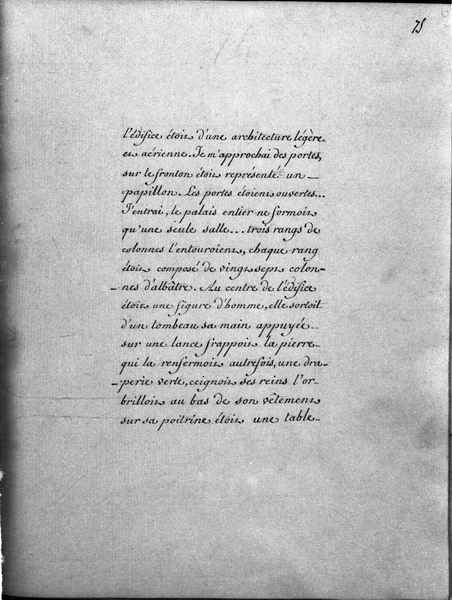 75
l'édifice étoit d'une architecture légère
et aérienne. Je m'approchai des portes,
sur le fronton étoit représenté un
papillon. Les portes étoient ouvertes...
J'entrai, le palais entier ne formoit
qu'une seule salle... trois rangs de
colonnes l'entouroient, chaque rang
étoit composé de vingt sept colon-
-nes d'albâtre. Au centre de l'édifice
étoit une figure d'homme, elle sortoit
d'un tombeau sa main appuyée
sur une lance frappoit la pierre
qui la renfermoit autrefois, une dra-
-perie verte, ceignoit ses reins l'or
brilloit au bas de son vêtement
sur sa poitrine étoit une table